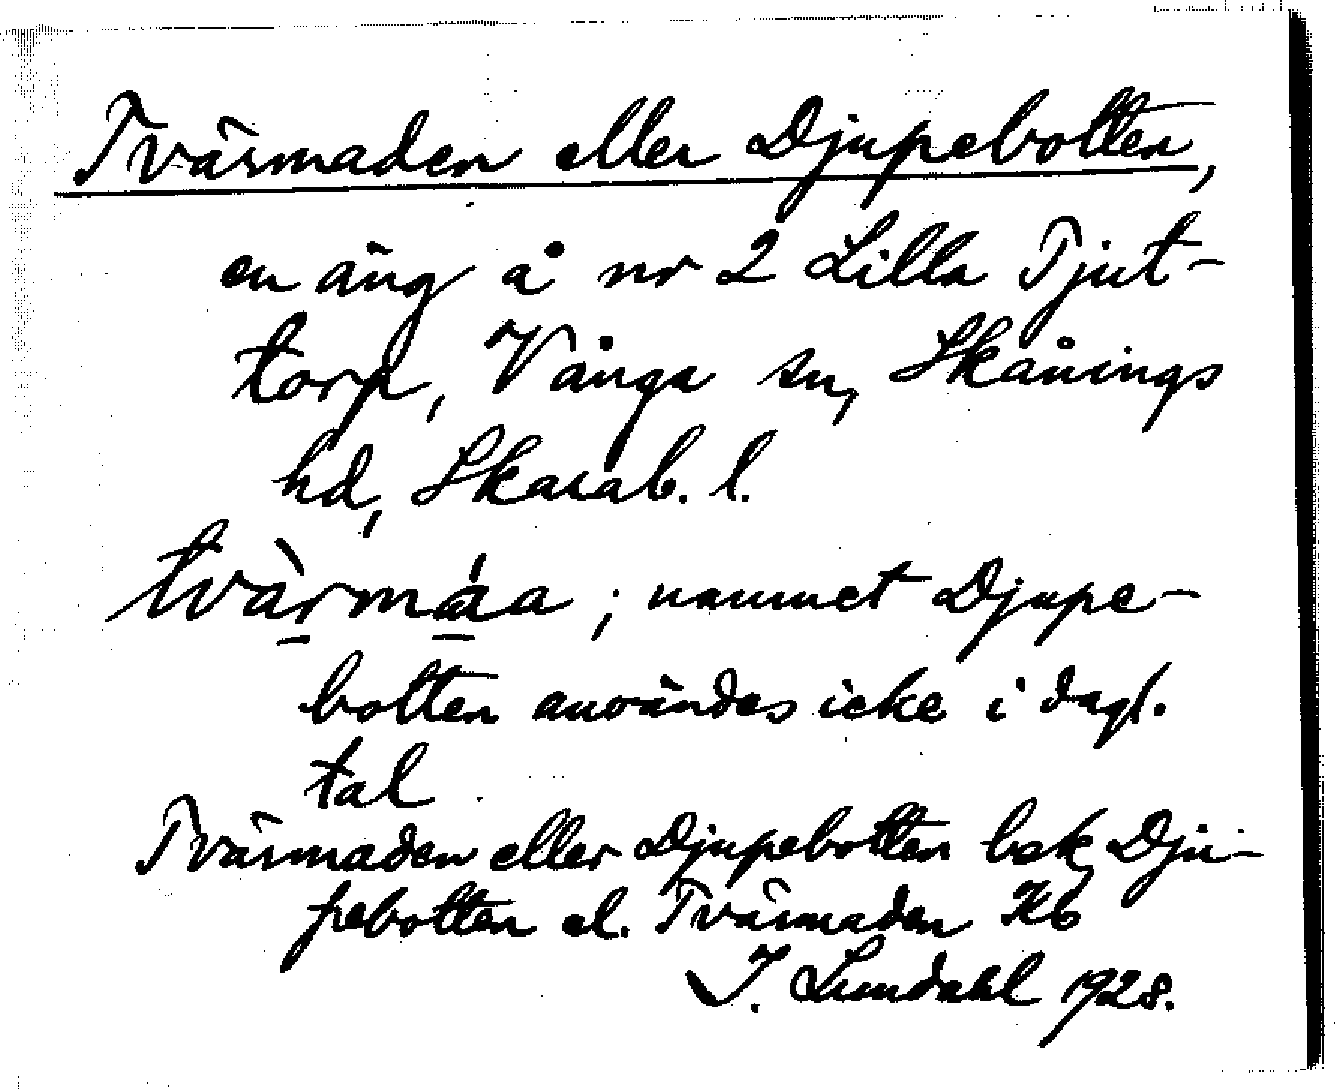 Tvärmaden eller Djupebotten,
en äng å nr 2 Lilla Tjut-
torp, Vånga sn, Skånings
hd, Skarab. l.
tvàrmáa ; namnet Djupe-
botten användes icke i dagl.
tal
Tvärmaden eller Djupebotten bek, Dju-
pebotten el. Tvärmaden Kb
I. Lundahl 1928.